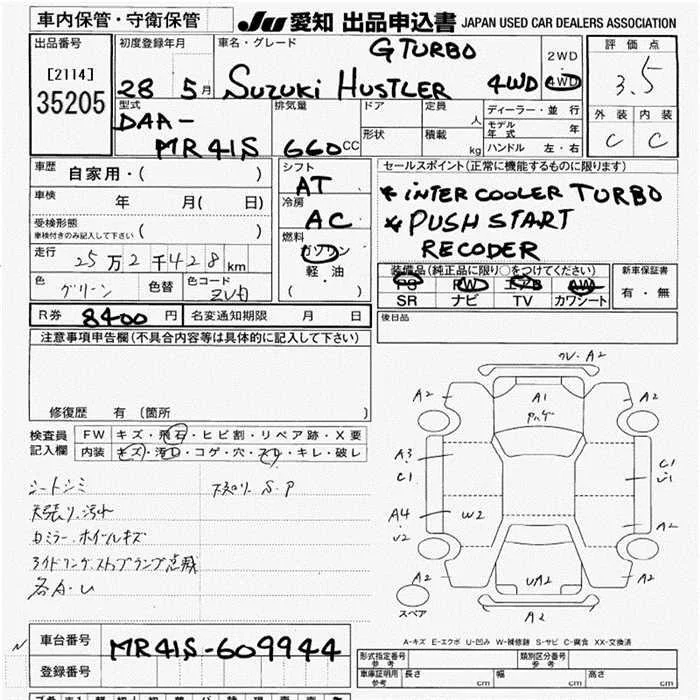 車内保管・守衛保管
JU 愛知 出品申込書 JAPAN USED CAR DEALERS ASSOCIATION
出品番号
[2114]
35205
初度登録年月
28 5月
車名・グレード
G TURBO
SUZUKI HUSTLER 4WD
2WD
4WD
評価点
3.5
外装 内装
C C
型式
DAA-
MR41S
排気量
660cc
ドア
形状
定員
人
積載
kg
ディーラー・並行
モデル年式 年
ハンドル 左・右
車歴
自家用・( )
車検
年 月( 日)
受検形態
車検付きのみ記入して下さい ( )
走行
25万2千428km
色
グリーン
色替
色コード
ZVJ
シフト
AT
冷房
AC
燃料
ガソリン
軽・油
( ・ )
セールスポイント(正常に機能するものに限ります)
* INTER COOLER TURBO
* PUSH START
RECODER
装備品(純正品に限り○をつけてください)
PS PW エアB AW
SR ナビ TV カワシート
新車保証書
有・無
R券 8400円
名変通知期限 月 日
後日品
注意事項申告欄(不具合内容等は具体的に記入して下さい)
修復歴 有 (箇所 )
検査員
記入欄
FW キズ・飛石・ヒビ割・リペア跡・X要
内装 キズ・汚レ・コゲ・穴・スレ・キレ・破レ
シートシミ
天張り汚れ
ホイールキズ
各A・U
S.P
A2
A2
A1
A2
A3
C1
C1
U1
A4
U2
W2
A2
A2
UA2
A2
A2
スペア
A-キズ E-エクボ U-凹み W-補修跡 S-サビ C-腐食 XX-交換済
車台番号
MR41S-609944
登録番号
形式指定番号
参考
類別区分番号
参考
車庫証明用
参考
長さ cm
幅 cm
高さ cm